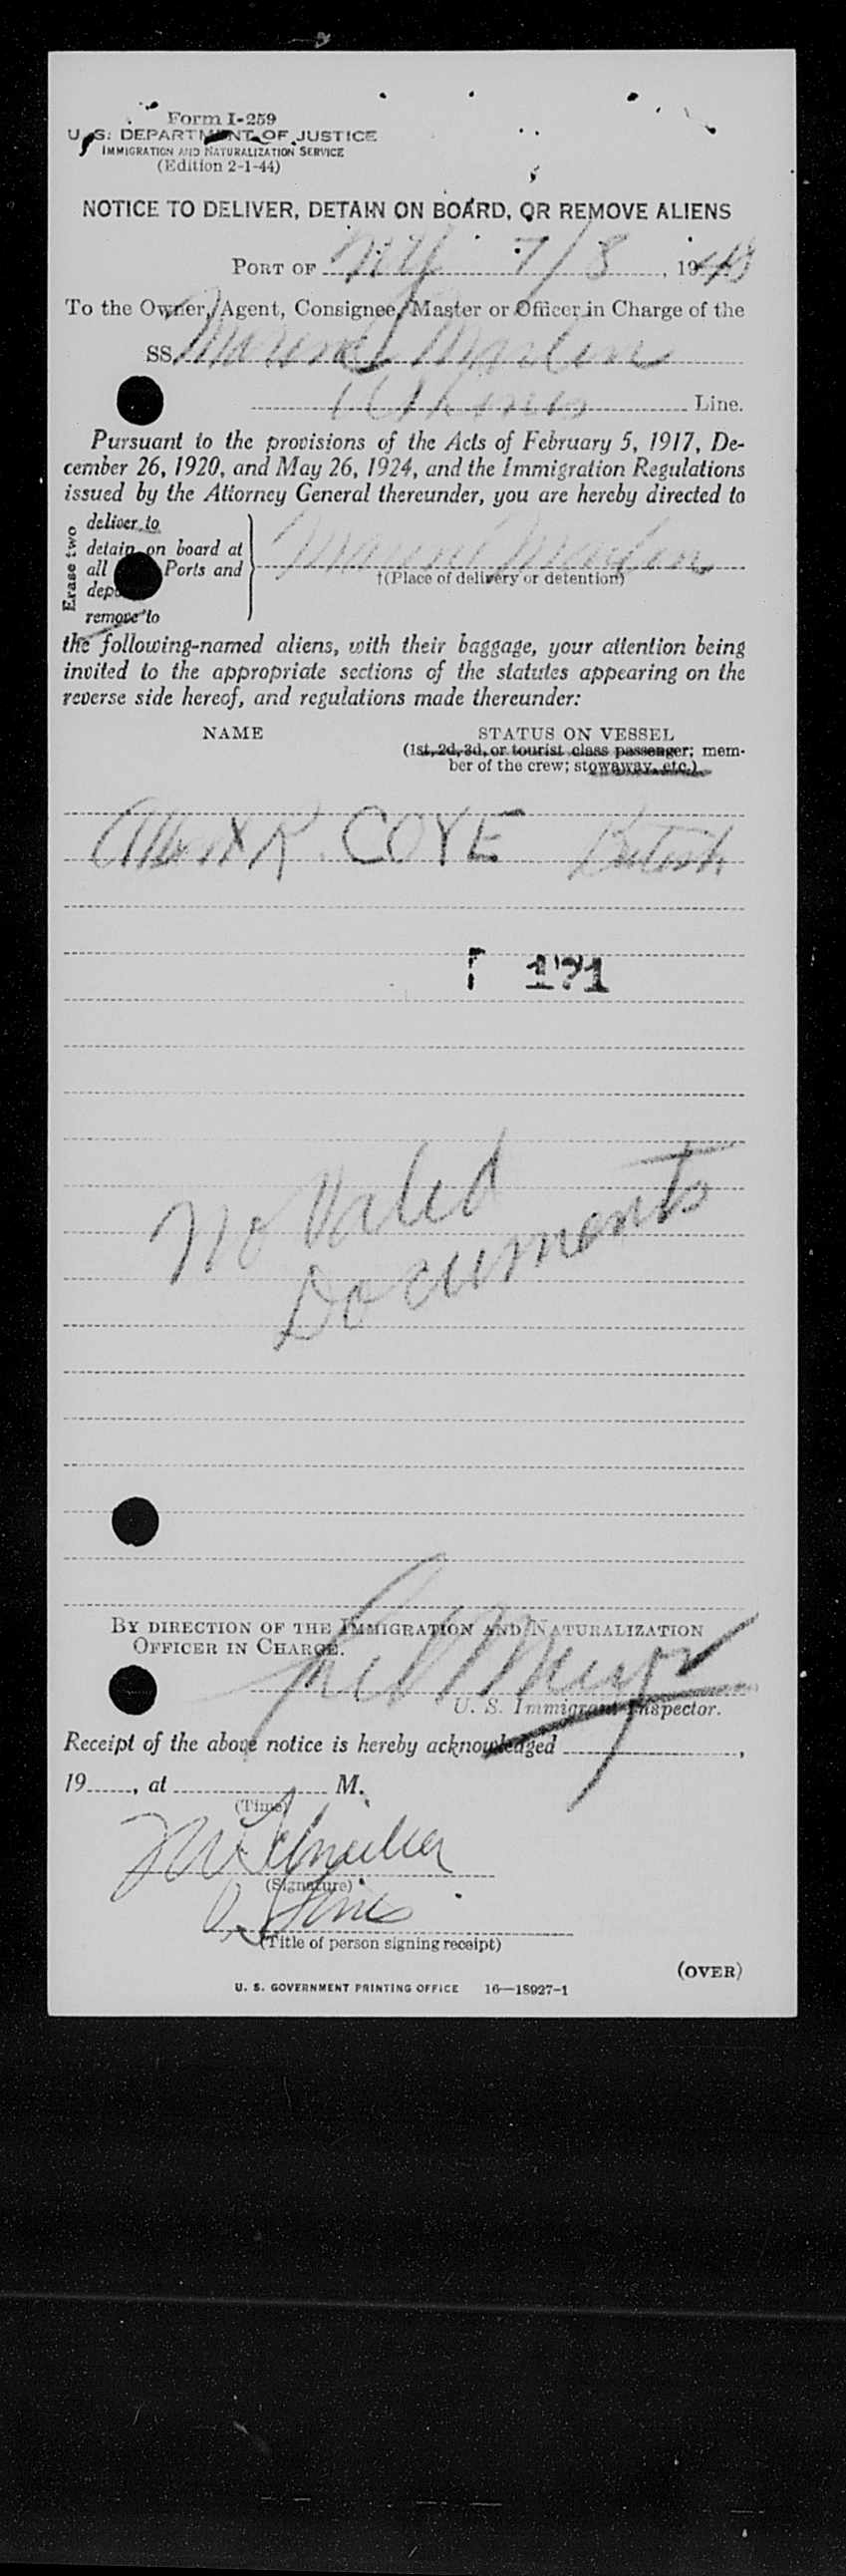 Form I-259
U. S. DEPARTMENT OF JUSTICE
IMMIGRATION AND NATURALIZATION SERVICE
(Edition 2-1-44)
NOTICE TO DELIVER, DETAIN ON BOARD, OR REMOVE ALIENS
PORT OF NY 7/8, 1948
To the Owner, Agent, Consignee, Master or Officer in Charge of the
SS Marine Marlin
Line.
Pursuant to the provisions of the Acts of February 5, 1917, De-
cember 26, 1920, and May 26, 1924, and the Immigration Regulations
issued by the Attorney General thereunder, you are hereby directed to
Erase two
deliver to
detain on board at
all Ports and
remove to
Marine Marlin
†(Place of delivery or detention)
the following-named aliens, with their baggage, your attention being
invited to the appropriate sections of the statutes appearing on the
reverse side hereof, and regulations made thereunder:
NAME STATUS ON VESSEL
(1st, 2d, 3d, or tourist class passenger; mem-
ber of the crew; stowaway, etc.)
R. COYE British
171
No Valid
Documents
BY DIRECTION OF THE IMMIGRATION AND NATURALIZATION
OFFICER IN CHARGE.
U. S. Immigrant Inspector.
Receipt of the above notice is hereby acknowledged ,
19 , at M.
(Time)
(Signature)
(Title of person signing receipt)
(OVER)
U. S. GOVERNMENT PRINTING OFFICE 16—18927-1